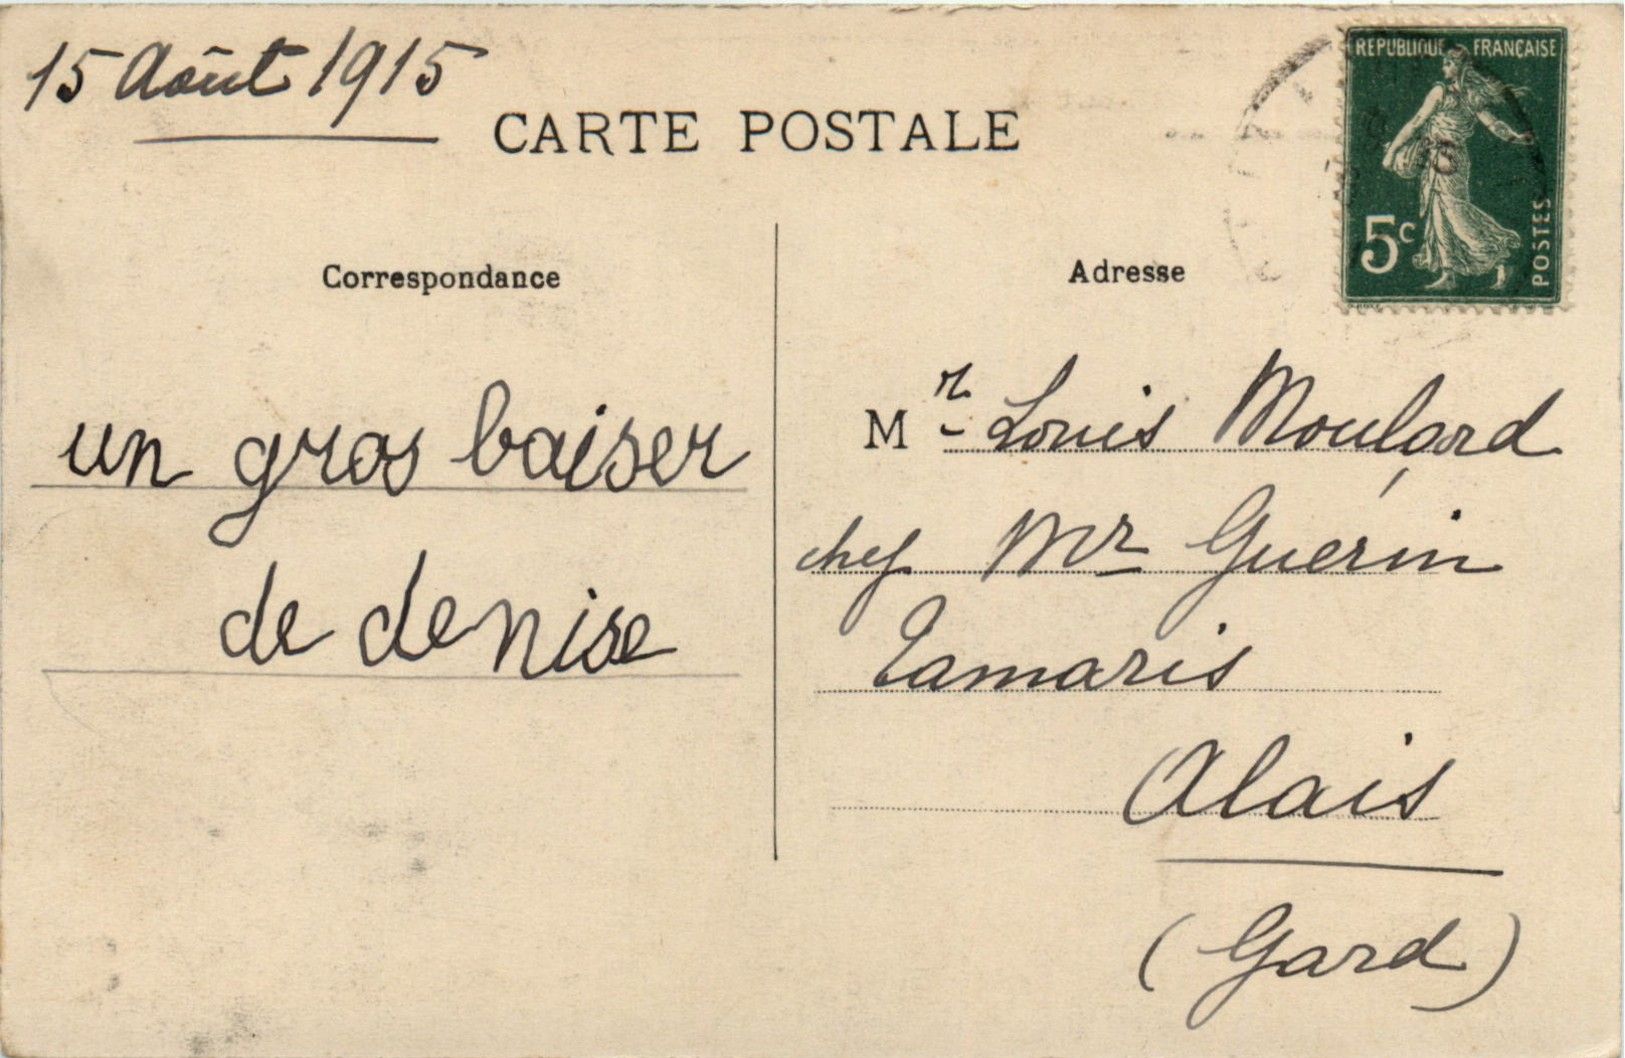 15 Août 1915
CARTE POSTALE
REPUBLIQUE FRANÇAISE
5c
POSTES
Correspondance
un gros baiser
de denise
Adresse
Mr Louis Moulard
chez Mr Guérin
Tamaris
Alais
(Gard)